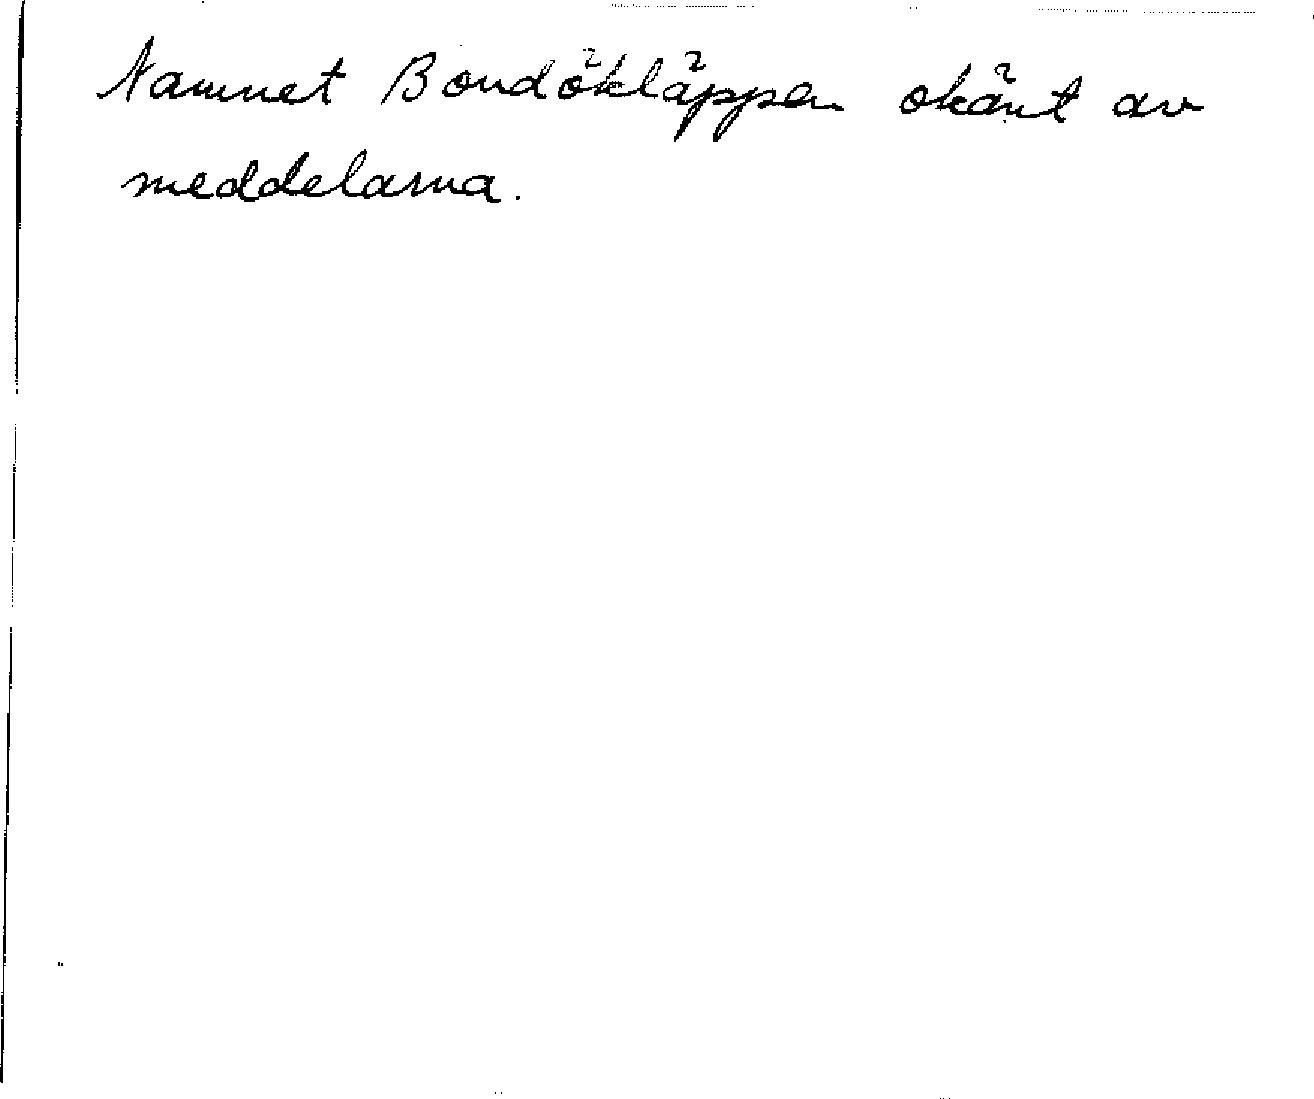 Namnet Bondökläppen okänt av
meddelarna.